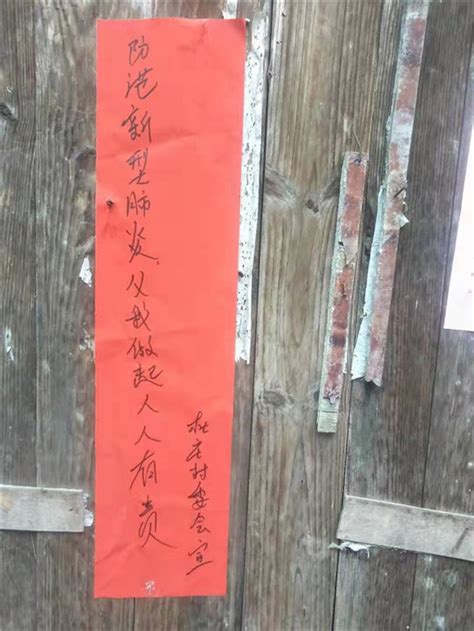 防范新型肺炎,从我做起人人有责
杜庄村委会宣